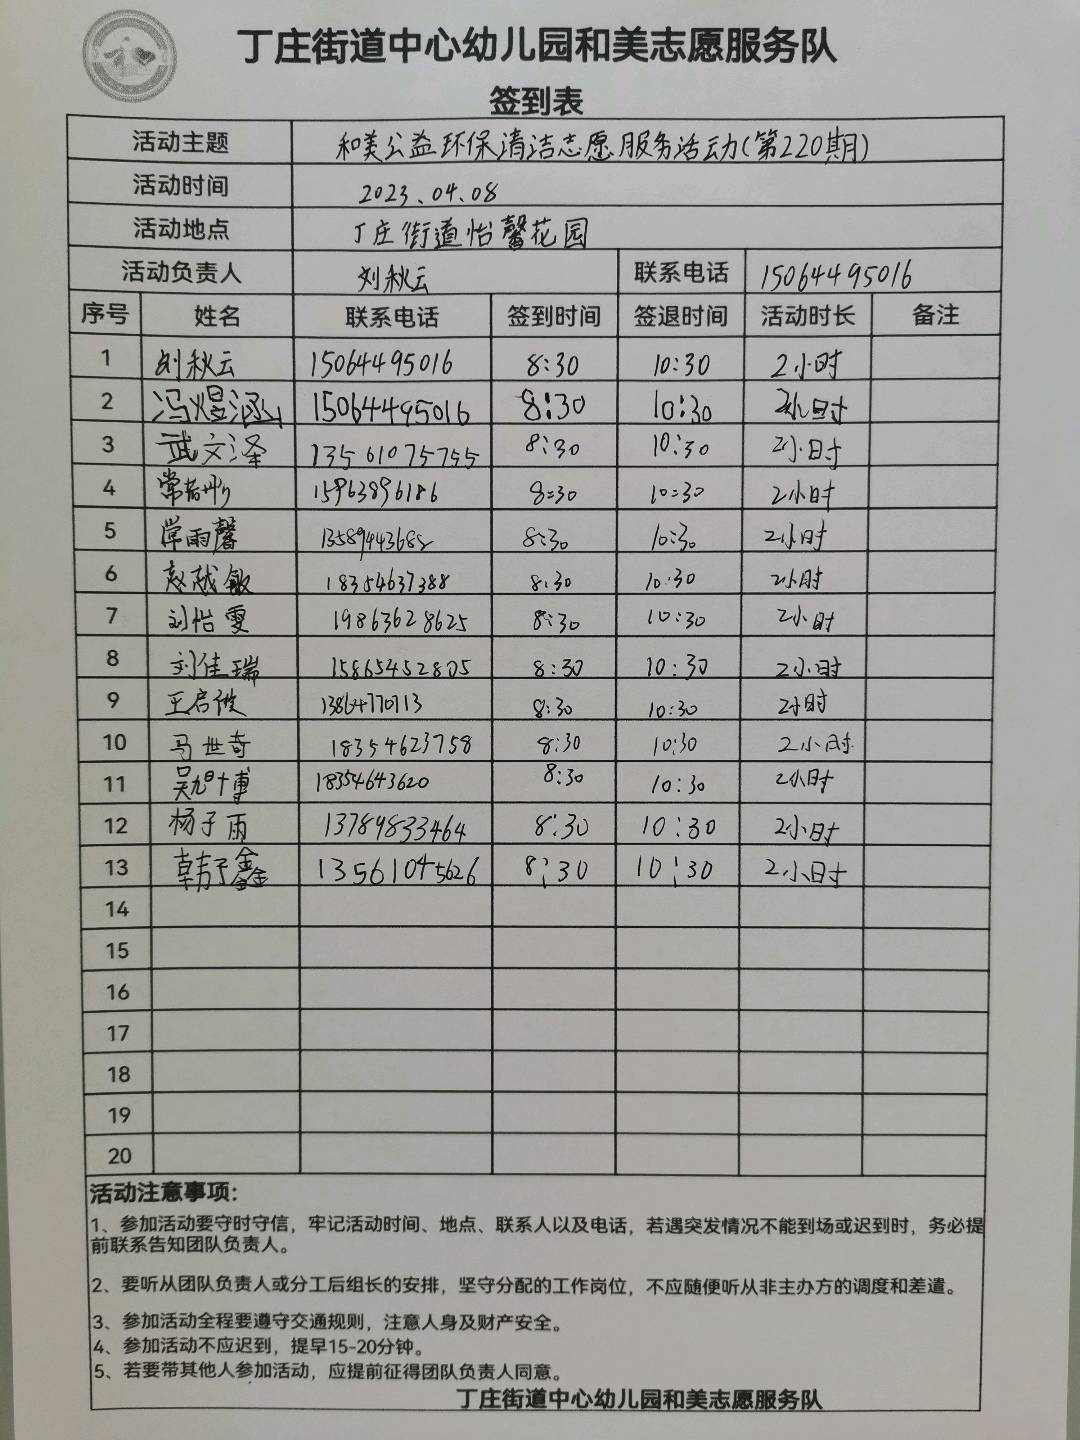 丁庄街道中心幼儿园和美志愿服务队
签到表
活动主题 和美公益环保清洁志愿服务活动(第220期)
活动时间 2023.04.08
活动地点 丁庄街道怡馨花园
活动负责人 刘秋云 联系电话 15064495016
序号 姓名 联系电话 签到时间 签退时间 活动时长 备注
1 刘秋云 15064495016 8:30 10:30 2小时
2 冯煜涵 15064495016 8:30 10:30 2小时
3 武文泽 13561075755 8:30 10:30 2小时
4 15963896186 8:30 10:30 2小时
5 常雨馨 13589443688 8:30 10:30 2小时
6 赵敏 18354637388 8:30 10:30 2小时
7 刘怡雯 19863628625 8:30 10:30 2小时
8 刘佳瑞 15865452805 8:30 10:30 2小时
9 王启 13864770713 8:30 10:30 2小时
10 马世奇 18354623758 8:30 10:30 2小时
11 吴博 18354643620 8:30 10:30 2小时
12 杨子雨 13789833464 8:30 10:30 2小时
13 韩子鑫 13561045626 8:30 10:30 2小时
14
15
16
17
18
19
20
活动注意事项:
1、参加活动要守时守信，牢记活动时间、地点、联系人以及电话，若遇突发情况不能到场或迟到时，务必提
前联系告知团队负责人。
2、要听从团队负责人或分工后组长的安排，坚守分配的工作岗位，不应随便听从非主办方的调度和差遣。
3、参加活动全程要遵守交通规则，注意人身及财产安全。
4、参加活动不应迟到，提早15-20分钟。
5、若要带其他人参加活动，应提前征得团队负责人同意。
丁庄街道中心幼儿园和美志愿服务队